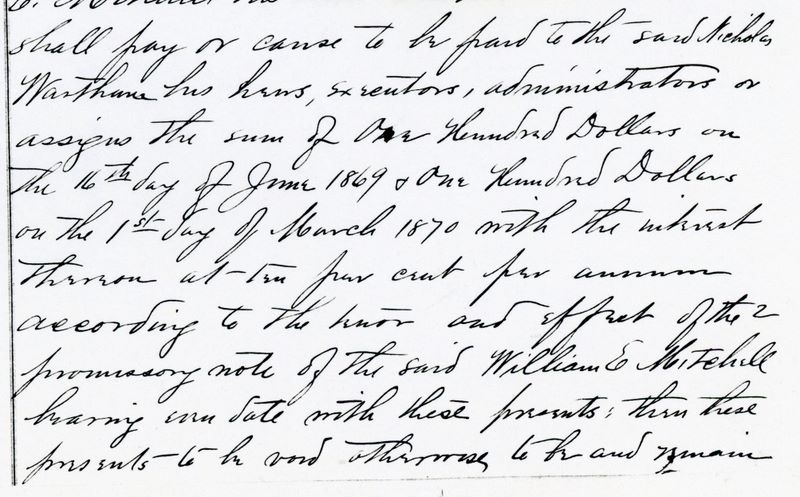 E. Mitchell
shall pay or cause to be paid to the said Nicholas
Warthane his heirs, executors, administrators or
assigns the sum of One Hundred Dollars on
the 16th day of June 1869 & One Hundred Dollars
on the 1st day of March 1870 with the interest
thereon at ten per cent per annum
according to the tenor and effect of the 2
promissory note of the said William E Mitchell
bearing even date with these presents; then these
presents to be void otherwise to be and remain